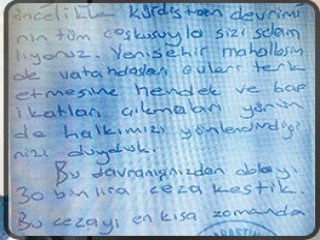 öncelikle kürdistan devrimi
nin tüm coşkusuyla sizi selam
lıyoruz. Yenişehir mahallesin
de vatandaşları evleri terk
etmesine hendek ve bar
ikatları çıkmaları yönün
de halkımızı yönlendirdiği
nizi duyduk.
Bu davranışınızdan dolayı
30 bin lira ceza kestik.
Bu cezayı en kısa zamanda